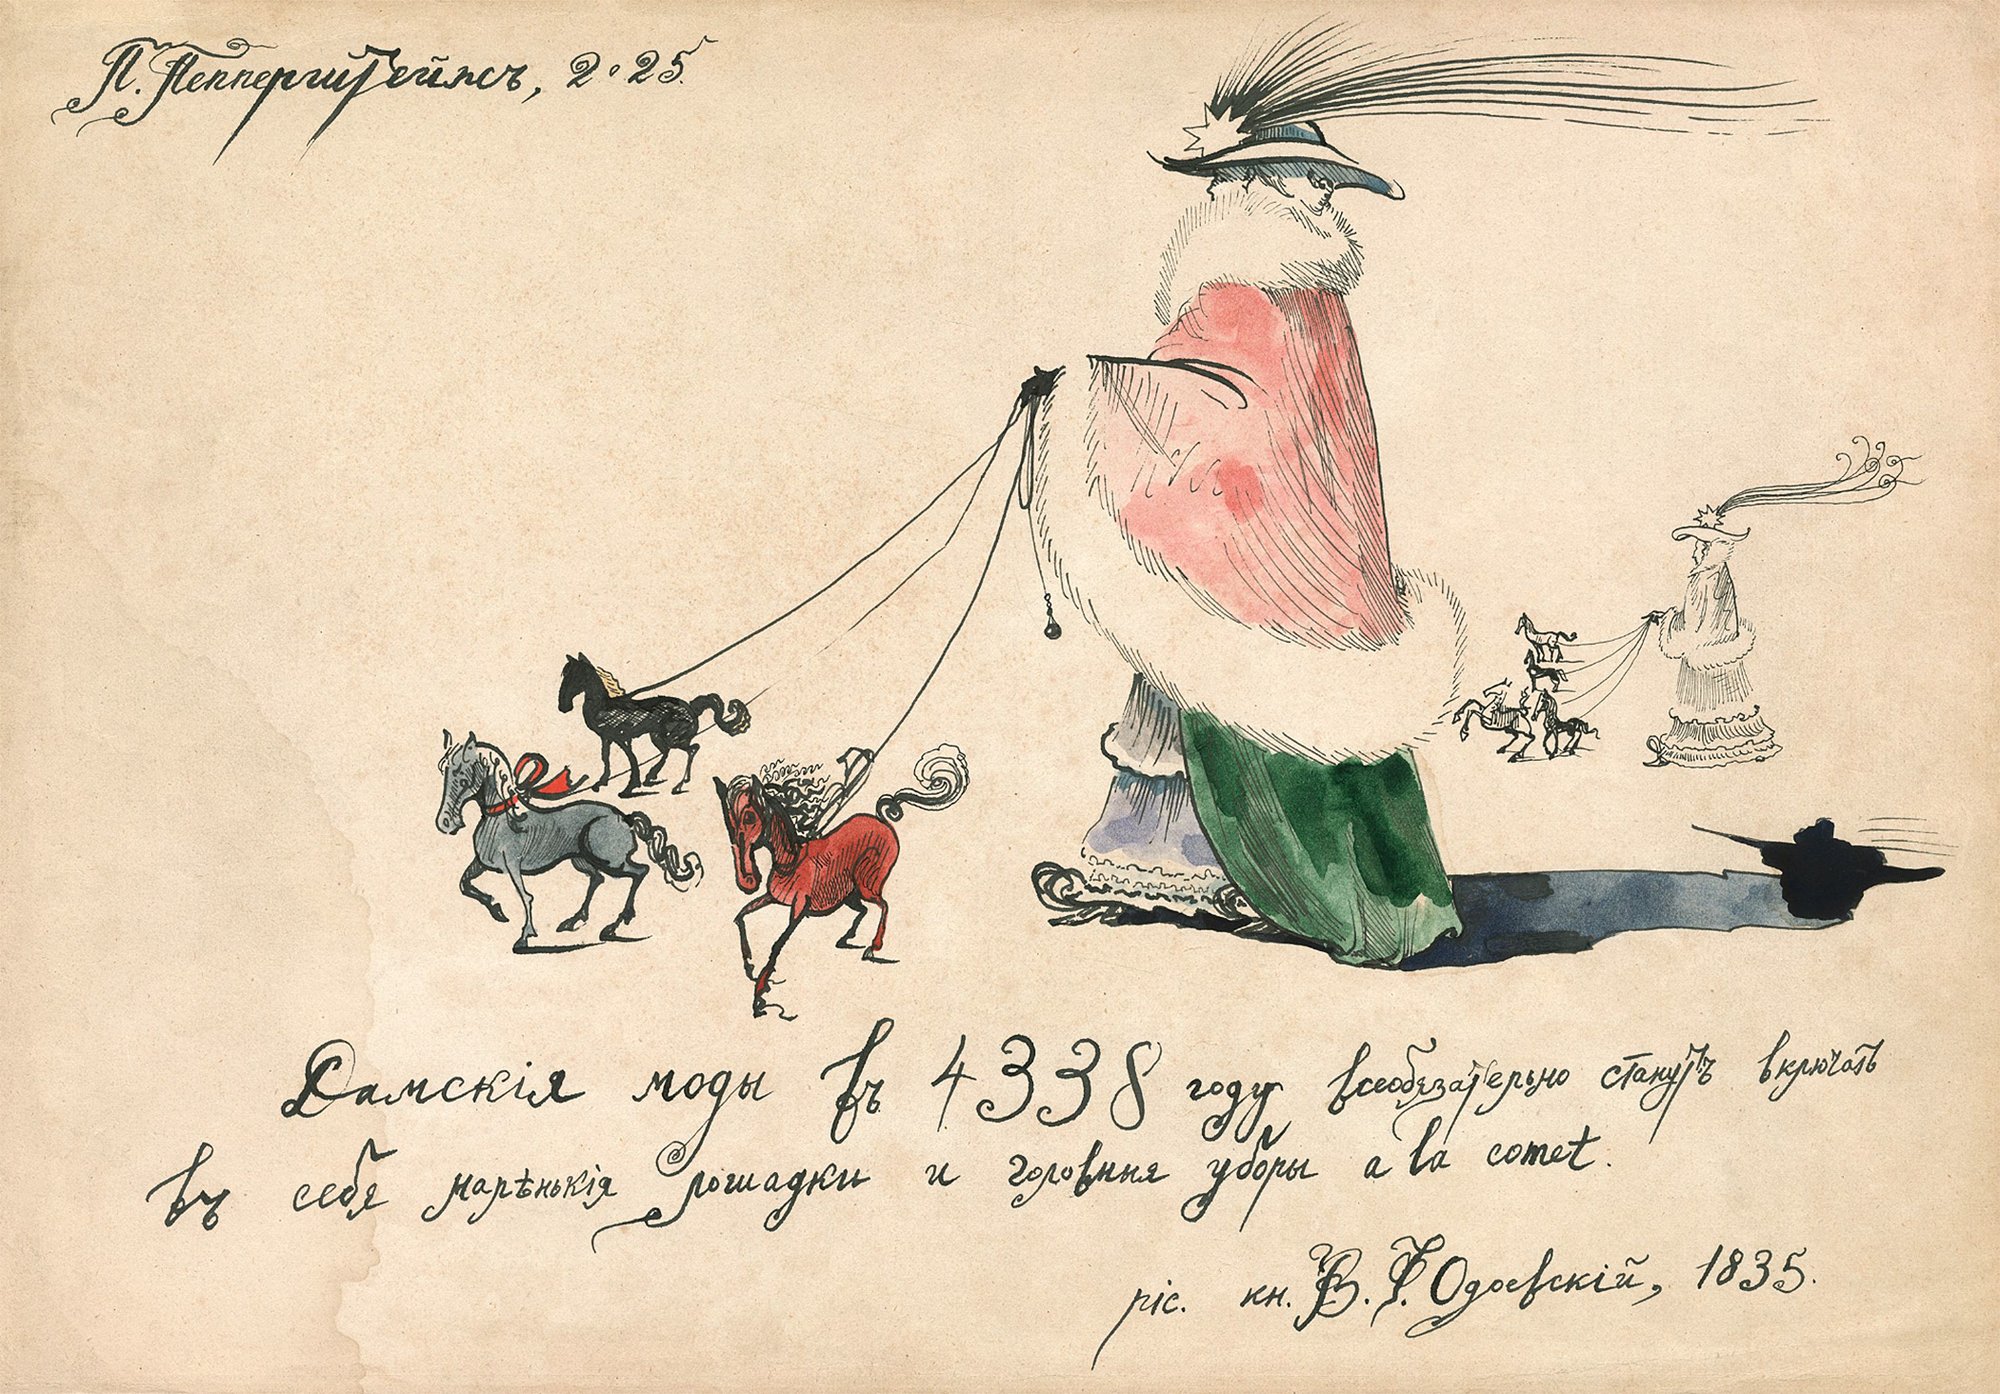 П. Пепперштейнъ, 2025.
Дамскія моды въ 4338 году всеобязательно станутъ включать
въ себя малѣнькія лошадки и головныя уборы a la comet.
ріс. кн. В. Ѳ. Одоевскій, 1835.